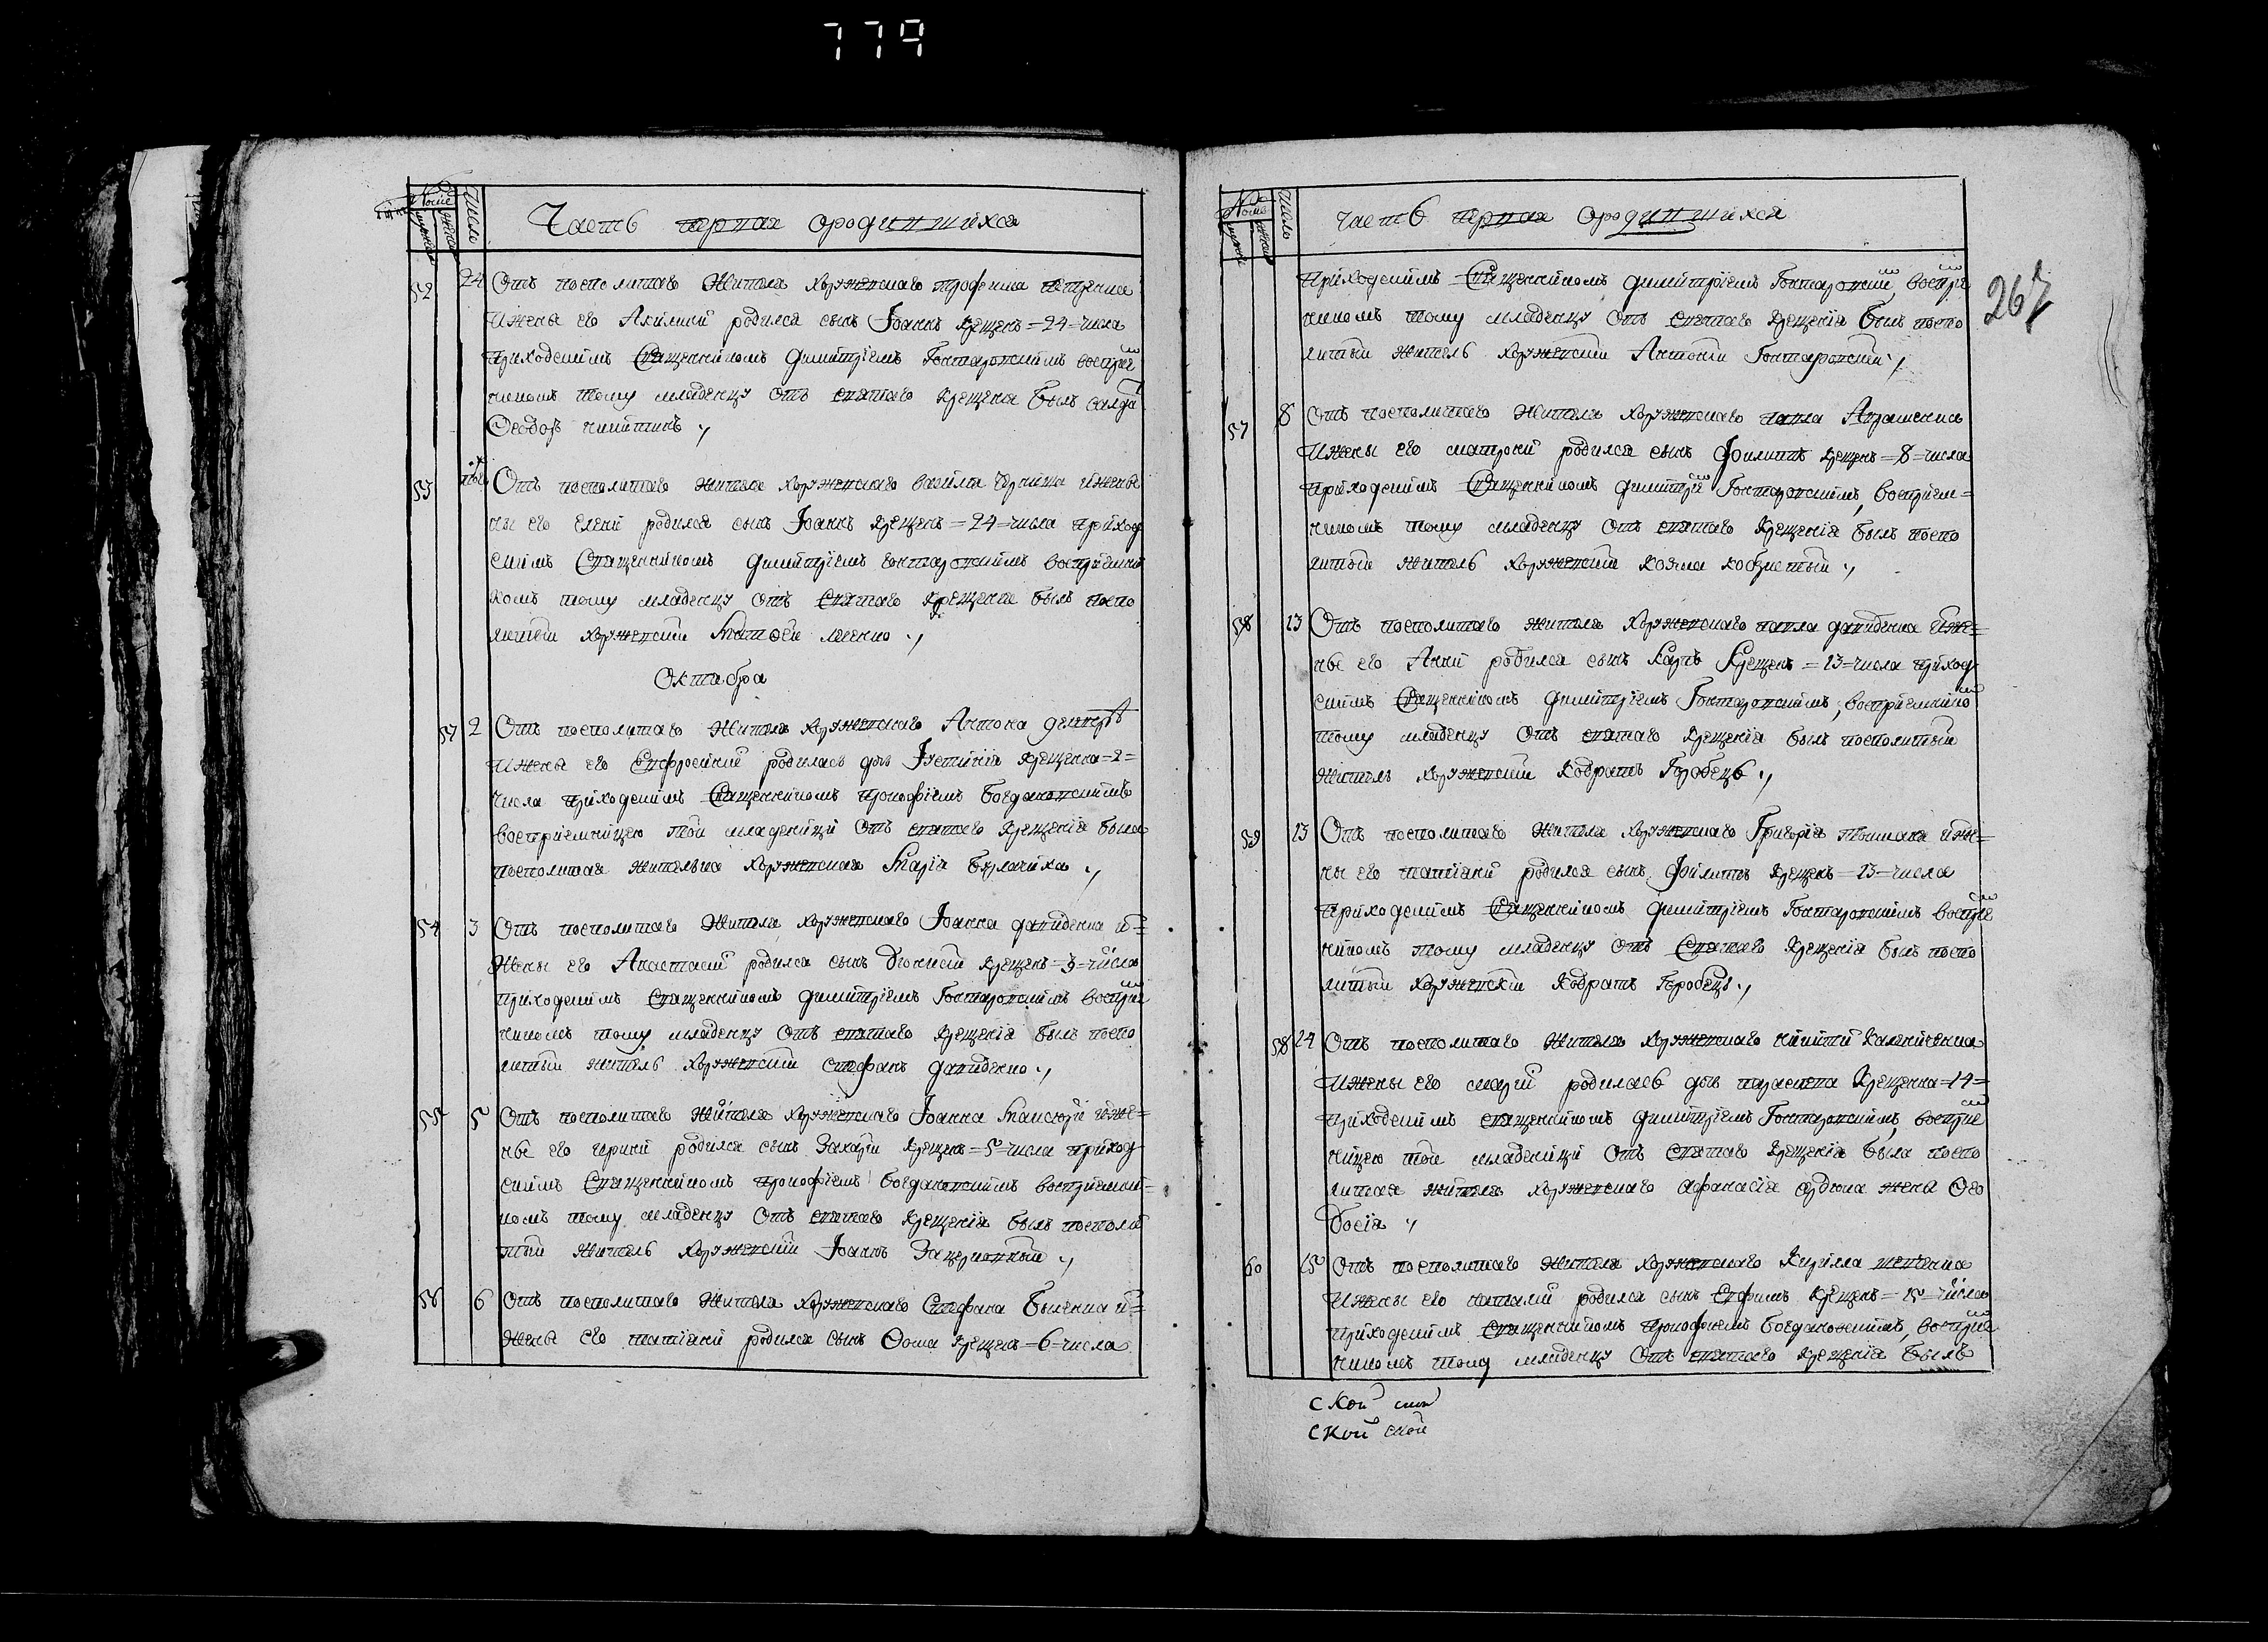 779
Часть первая ородившихся
52 24 Отъ посполитаго жителя хоружевскаго трофима
ижены его Акилини родился сынъ Іоаннъ крещенъ =24= числа
приходскимъ Священникомъ Димитріемъ Гонтаровскимъ воспріем
никомъ тому младенцу Отъ святаго крещенія былъ салдатъ
Ѳеодоръ никитинъ
53 Отъ посполитаго жителя хоружевскаго василя ижены
ны его Елени родился сынъ Іоаннъ крещенъ =24= числа приход
скимъ Священникомъ Димитріемъ гонтаровскимъ воспріемни
комъ тому младенцу Отъ Святаго крещенія былъ поспо
литый хоружевский Матѳей
Октября
57 2 Отъ посполитаго жителя хоружевскаго Антона
ижены его Евфросинии родилась дщь Іустинія крещенна =2=
числа приходскимъ Священникомъ прокофіемъ Богдановскимъ
воспріемницею той младеници Отъ святаго крещенія была
посполитая жителька хоружевская Марія
54 3 Отъ посполитаго жителя хоружевскаго Іоанна давиденка и=
жены его Анастасіи родился сынъ Дионисій крещенъ =3= числа
приходскимъ Священникомъ Димитріемъ Гонтаровскимъ воспріем
никомъ тому младенцу Отъ святаго крещенія былъ поспо
литый житель хоружевский Стефанъ давиденко
55 5 Отъ посполитаго жителя хоружевскаго Іоанна иже=
ны его ирини родился сынъ Захарій крещенъ =5= числа приход
скимъ Священникомъ прокофіемъ Богдановскимъ воспріемни=
комъ тому младенцу Отъ святаго крещенія былъ посполи
тый житель хоружевский Іоаннъ
56 6 Отъ посполитаго жителя хоружевскаго Стефана и=
жены его татіани родился сынъ Ѳома крещенъ =6= числа
Часть первая ородившихся
267
приходскимъ Священникомъ Димитріемъ Гонтаровскимъ, воспріем
никомъ тому младенцу Отъ святаго крещенія былъ поспо
литый житель хоружевский Антоній Гонтаровский
57 8 Отъ посполитаго жителя хоружевскаго павла Аврашенка
ижены его матрони родился сынъ Филиппъ крещенъ =8= числа
приходскимъ Священникомъ Димитріемъ Гонтаровскимъ, воспріем=
никомъ тому младенцу Отъ святаго крещенія былъ поспо
литый житель хоружевский козма
58 13 Отъ посполитаго жителя хоружевскаго павла давиденка иже=
ны его Анни родился сынъ Карпъ крещенъ =13= числа приход
скимъ Священникомъ Димитріемъ Гонтаровскимъ, воспріемником
тому младенцу Отъ святаго крещенія былъ посполитый
житель хоружевский Кодратъ Горобець
59 13 Отъ посполитаго жителя хоружевскаго Григорія иже=
ны его татіани родился сынъ Филиппъ крещенъ =13= числа
приходскимъ Священникомъ Димитріемъ Гонтаровскимъ воспріем
никомъ тому младенцу Отъ Святаго крещенія былъ поспо
литый хоружевский Кодратъ Горобець
58 24 Отъ посполитаго жителя хоружевскаго никити
ижены его маріи родилась дщь параскева крещенна =14=
приходскимъ священникомъ Димитріемъ Гонтаровскимъ, воспріем
ницею той младеници Отъ Святаго крещенія была поспо
литая жителя хоружевскаго афанасія жена Ѳео
досія
60 15 Отъ посполитаго жителя хоружевскаго Кирилла
ижены его наталіи родился сынъ Евфимъ крещенъ =15= числа
приходскимъ священникомъ прокофіемъ Богдановскимъ, воспріем
никомъ тому младенцу Отъ святаго крещенія былъ
ской ской
ской ской